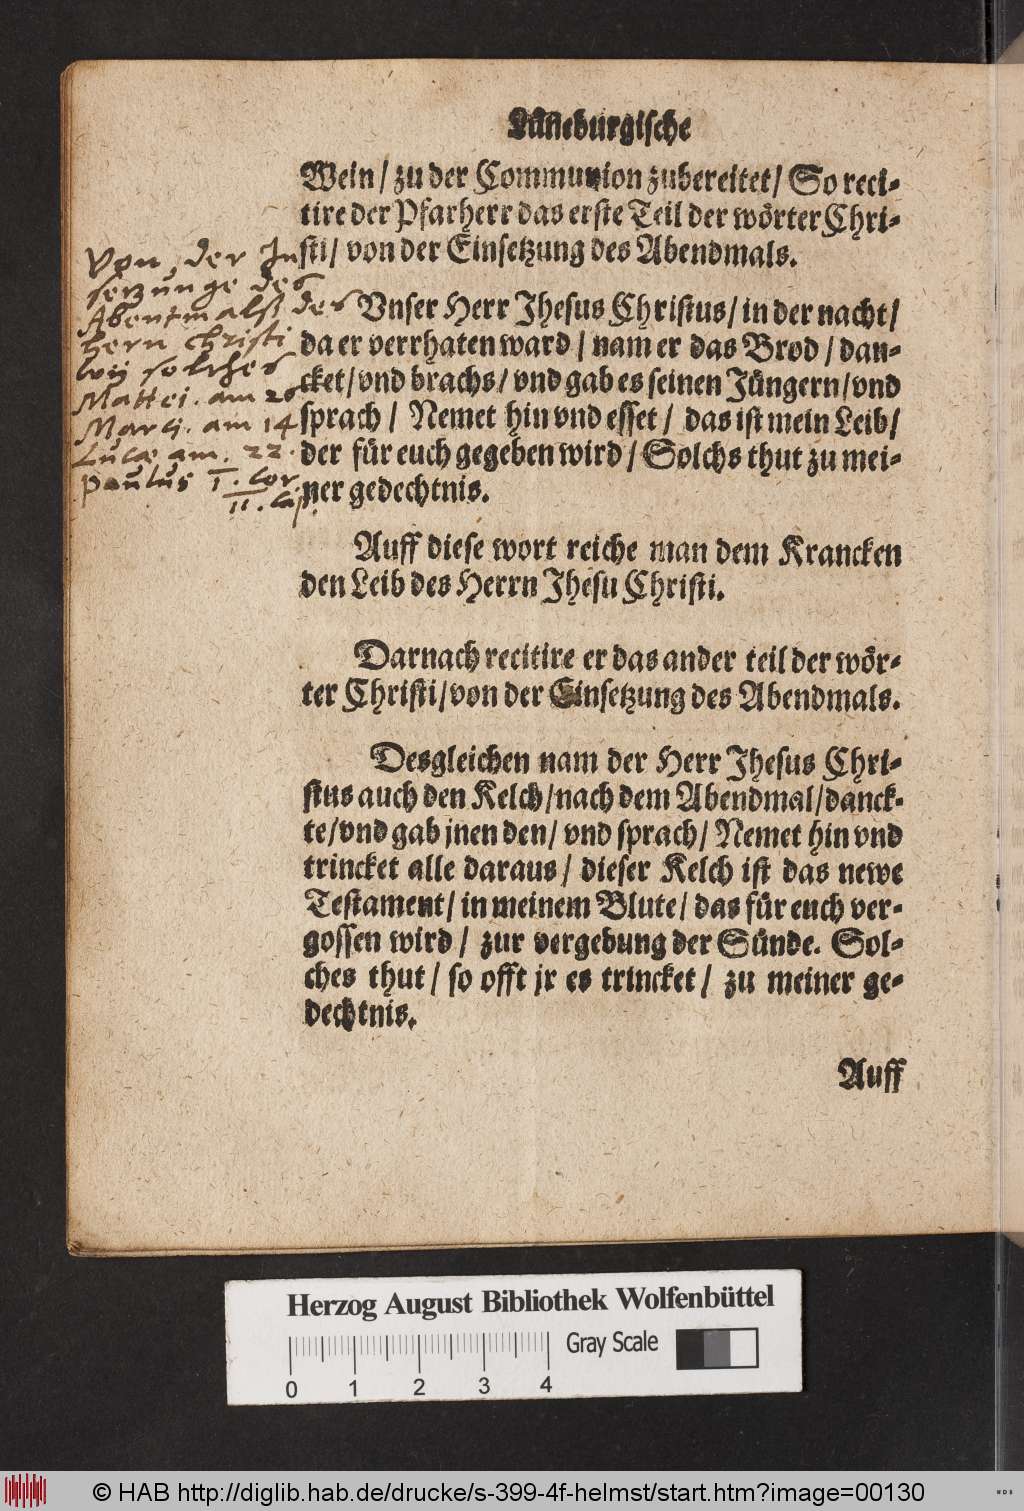 Lüneburgische
Wein / zu der Communion zubereitet / So reci-
tire der Pfarherr das erste Teil der wörter Chri-
sti / von der Einsetzung des Abendmals.
Von der In
setzunge des
Abentmalss des
hern christi
wij solches
Mattei. am 26
Marci. am 14
Lucæ am. 22.
Paulus I. Cor.
II. Cap.
Vnser Herr Jhesus Christus / in der nacht /
da er verrhaten ward / nam er das Brod / dan-
cket / vnd brachs / vnd gab es seinen Jüngern / vnd
sprach / Nemet hin vnd esset / das ist mein Leib /
der für euch gegeben wird / Solchs thut zu mei-
ner gedechtnis.
Auff diese wort reiche man dem Krancken
den Leib des Herrn Jhesu Christi.
Darnach recitire er das ander teil der wör-
ter Christi / von der Einsetzung des Abendmals.
Desgleichen nam der Herr Jhesus Chri-
stus auch den Kelch / nach dem Abendmal / danck-
te / vnd gab jnen den / vnd sprach / Nemet hin vnd
trincket alle daraus / dieser Kelch ist das newe
Testament / in meinem Blute / das für euch ver-
gossen wird / zur vergebung der Sünde. Sol-
ches thut / so offt jr es trincket / zu meiner ge-
dechtnis.
Auff
Herzog August Bibliothek Wolfenbüttel
Gray Scale
0 1 2 3 4
© HAB http://diglib.hab.de/drucke/s-399-4f-helmst/start.htm?image=00130